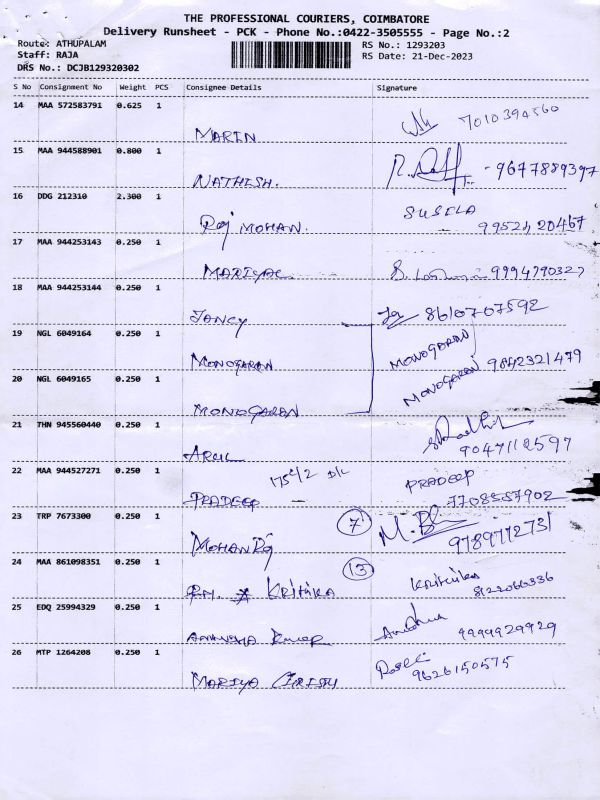 THE PROFESSIONAL COURIERS, COIMBATORE
Delivery Runsheet - PCK - Phone No.:0422-3505555 - Page No.:2
Route: ATHUPALAM RS No.: 1293203
Staff: RAJA RS Date: 21-Dec-2023
DRS No.: DCJB129320302
S No Consignment No Weight PCS Consignee Details Signature
14 MAA 572583791 0.625 1
MARIN 7010394560
15 MAA 944588901 0.800 1
NATHESH. - 9677889397
16 DDG 212310 2.300 1
Raj MOHAN. SUSELA
9952420467
17 MAA 944253143 0.250 1
MARIYAL 9994790327
18 MAA 944253144 0.250 1
JANCY 8610707592
19 NGL 6049164 0.250 1
MONOGARAN MONOGARAN
20 NGL 6049165 0.250 1
MONOGARAN MONOGARAN 9842321479
21 THN 945560440 0.250 1
ARUL 9047112597
22 MAA 944527271 0.250 1
PRADEEP PRADEEP
7708557902
23 TRP 7673300 0.250 1 7
MOHAN Raj 9789772731
24 MAA 861098351 0.250 1 13
KRITHIKA Krithika
8122066336
25 EDQ 25994329 0.250 1
Kumar 9999929929
26 MTP 1264208 0.250 1
MARIYA 9626150575